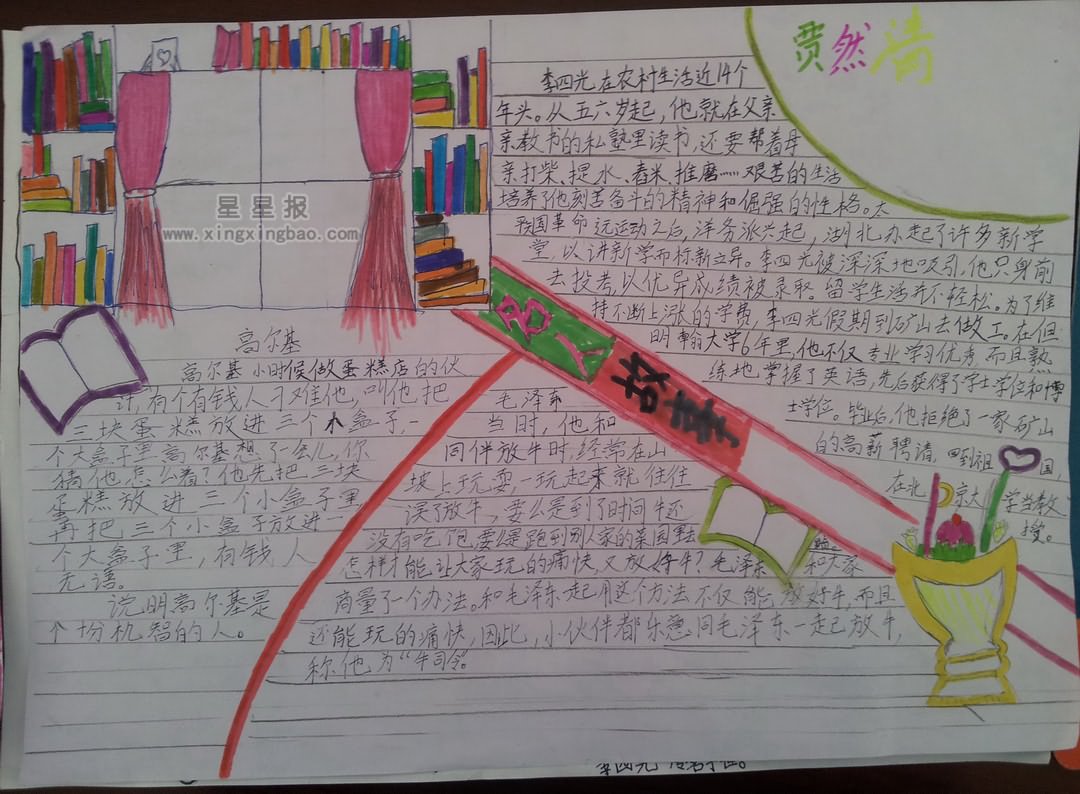 贾然清
星星报
www.xingxingbao.com
名人
故事
李四光在农村生活近14个
年头。从五六岁起，他就在父亲
亲教书的私塾里读书，还要帮着母
亲打柴、提水、舂米、推磨……艰苦的生活
培养了他刻苦奋斗的精神和倔强的性格。太
我国革命 运动之后，洋务派兴起，湖北办起了许多新学
堂，以讲新学而标新立异。李四光被深深地吸引，他只身前
去投考，以优异成绩被录取。留学生活并不轻松。为了维
持不断上涨的学费，李四光假期到矿山去做工。在但
明翰大学6年里，他不仅专业学习优秀，而且熟
练地掌握了英语，先后获得了学士学位和博
士学位。毕业后，他拒绝了一家矿山
的高薪聘请，回到祖国，
在北京大学当教
授。
高尔基
高尔基小时候做蛋糕店的伙
计，有个有钱人刁难他，叫他把
三块蛋糕放进三个小盒子，一
个大盒子里高尔基想了一会儿，你
猜他怎么着？他先把三块
蛋糕放进三个小盒子里
再把三个小盒子放进一
个大盒子里，有钱人
无语。
说明高尔基是
个机智的人。
毛泽东
当时，他和
同伴放牛时，经常在山
坡上玩耍，一玩起来就往往
误了放牛，要么是到了时间牛还
没有吃饱，要么是跑到别人家的菜园里去
怎样才能让大家玩的痛快，又放好牛？毛泽东和大家
商量了一个办法。和毛泽东一起用这个方法不仅能放好牛，而且
还能玩的痛快，因此，小伙伴都乐意同毛泽东一起放牛，
称他为“牛司令”。
李四光